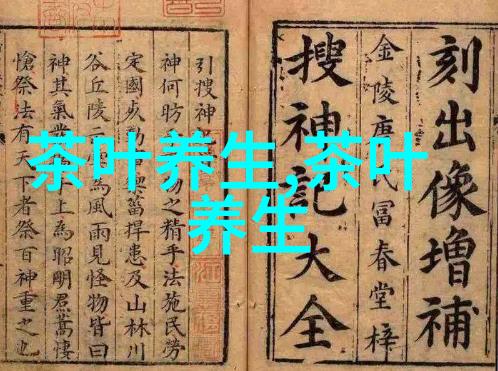 茶叶养生,茶叶
养生
刻出像增補
金陵唐氏富春堂梓
搜神記大全
引搜神
神何昉物之精乎法施民勞
定國禦菑捍患及山林川
谷丘陵雲為風雨見怪物皆曰
神其氣上為昭明焄蒿悽
愴祭法有天下者祭百神重之也